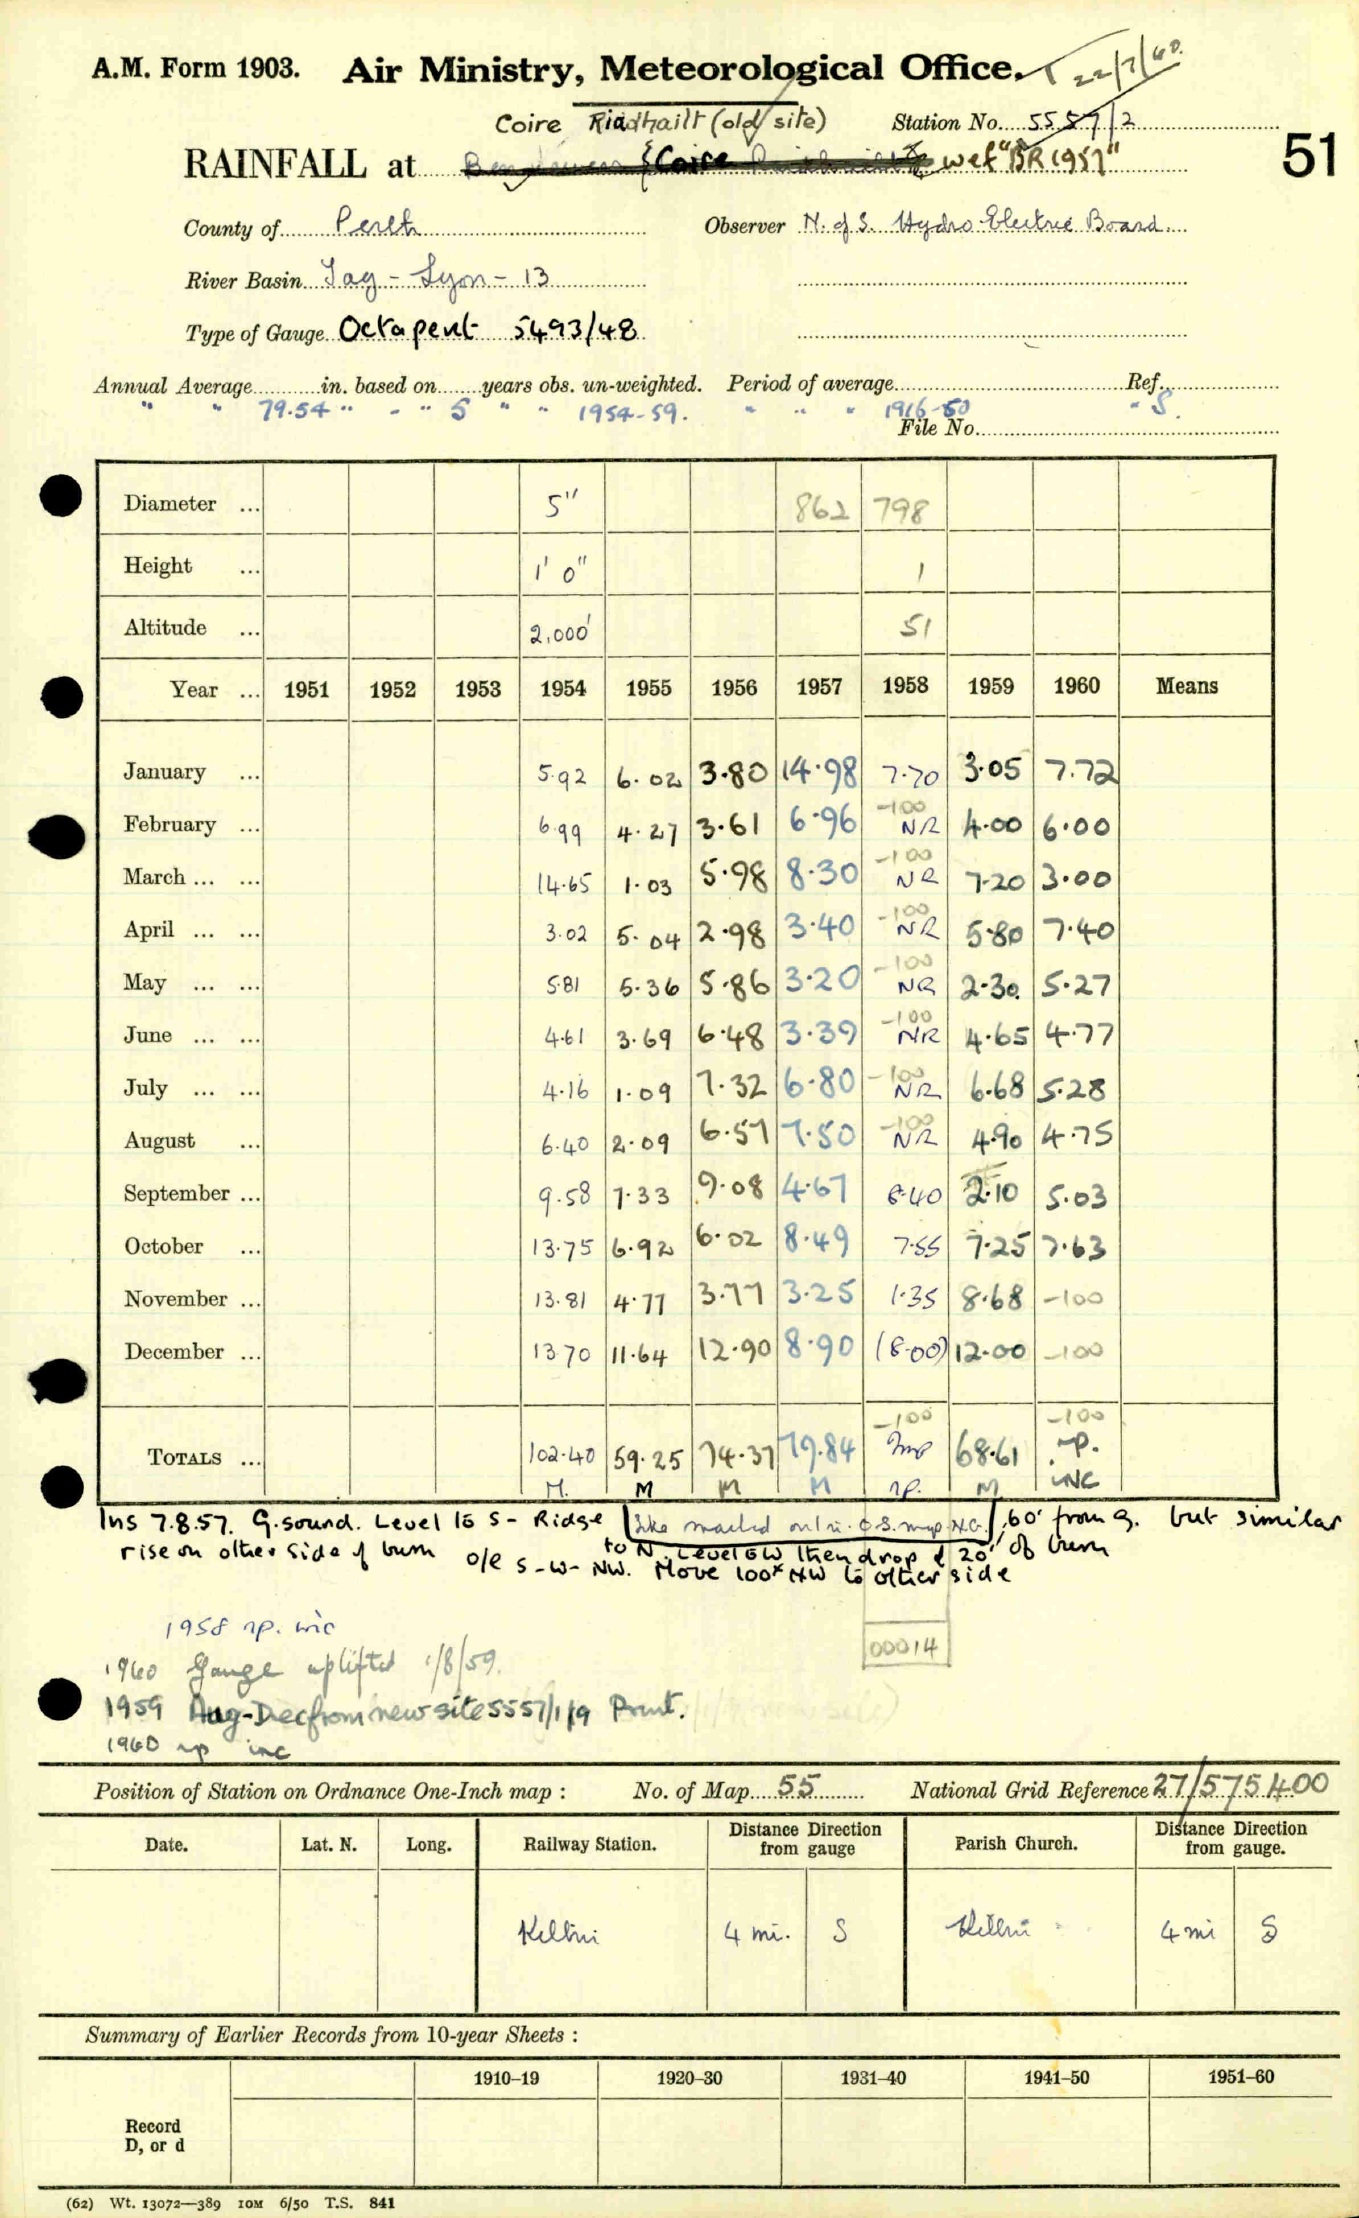 A.M. Form 1903. Air Ministry, Meteorological Office. 22/7/60.
Coire Riadhailt (old site) Station No. 5557/2
RAINFALL at Coire wef "BR 1957" 51
County of Perth Observer N. of S. Hydro-Electric Board.
River Basin Tay - Lyon - 13
Type of Gauge Octapent 5493/48
Annual Average in. based on years obs. un-weighted. Period of average Ref.
" " 79.54 " - " 5 " " 1954-59. " " " 1916-50 " S.
File No.
Diameter ... 5" 862 798
Height ... 1' 0" 1
Altitude ... 2,000' 51
Year ... 1951 1952 1953 1954 1955 1956 1957 1958 1959 1960 Means
January ... 5.92 6.02 3.80 14.98 7.70 3.05 7.72
February ... 6.99 4.27 3.61 6.96 -100 NR 4.00 6.00
March ... ... 14.65 1.03 5.98 8.30 -100 NR 7.20 3.00
April ... ... 3.02 5.04 2.98 3.40 -100 NR 5.80 7.40
May ... ... 5.81 5.36 5.86 3.20 -100 NR 2.30 5.27
June ... ... 4.61 3.69 6.48 3.39 -100 NR 4.65 4.77
July ... ... 4.16 1.09 7.32 6.80 -100 NR 6.68 5.28
August ... 6.40 2.09 6.57 7.50 -100 NR 4.90 4.75
September ... 9.58 7.33 9.08 4.67 6.40 2.10 5.03
October ... 13.75 6.92 6.02 8.49 7.55 7.25 7.63
November ... 13.81 4.77 3.77 3.25 1.35 8.68 -100
December ... 13.70 11.64 12.90 8.90 (8.00) 12.00 -100
-100 -100
TOTALS ... 102.40 59.25 74.37 79.84 Imp 68.61 np.
M. M M M np. M INC
Ins 7.8.57. G. sound. Level to S - Ridge Site marked on 1 in. O.S. map N.G. 60' from g. but similar
rise on other side of burn o/e S-W-NW. to N. Level 6W then drop of 20' of burn
Move 100x NW to other side
1958 np. inc
00014
1960 Gauge uplifted 1/8/59.
1959 Aug-Dec from new site 5557/1/9 Print.
1960 np inc
Position of Station on Ordnance One-Inch map : No. of Map 55 National Grid Reference 27/575400
Date. Lat. N. Long. Railway Station. Distance Direction from gauge Parish Church. Distance Direction from gauge.
Killin 4 mi. S Killin 4 mi S
Summary of Earlier Records from 10-year Sheets :
1910–19 1920–30 1931–40 1941–50 1951–60
Record
D, or d
(62) Wt. 13072—389 10M 6/50 T.S. 841